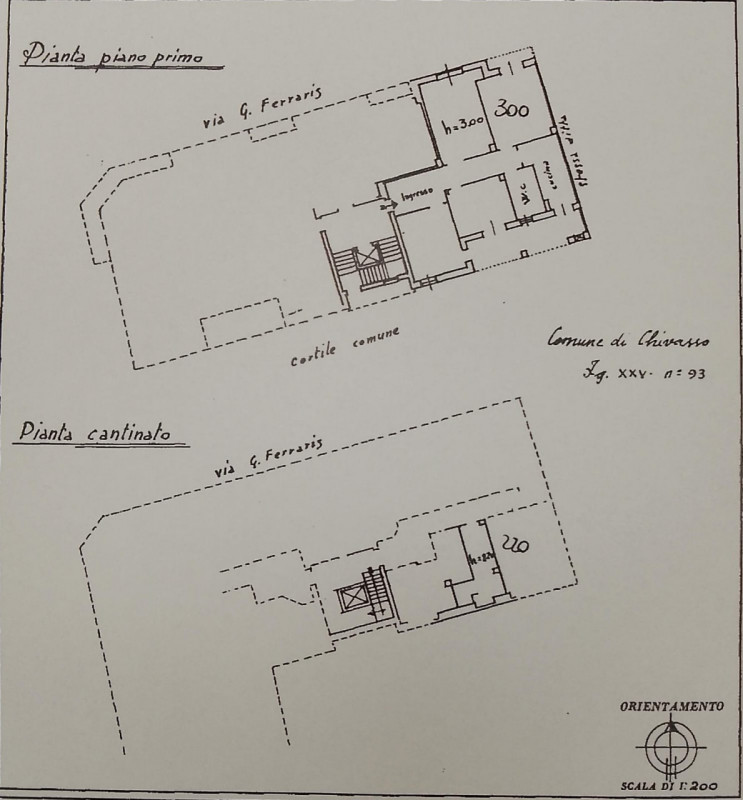 Pianta piano primo
via G. Ferraris
h=3.00
300
stessa ditta
Ingresso
W.C
cucina
cortile comune
Comune di Chivasso
Fg. XXV. n= 93
Pianta cantinato
via G. Ferraris
220
h=220
ORIENTAMENTO
SCALA DI 1:200